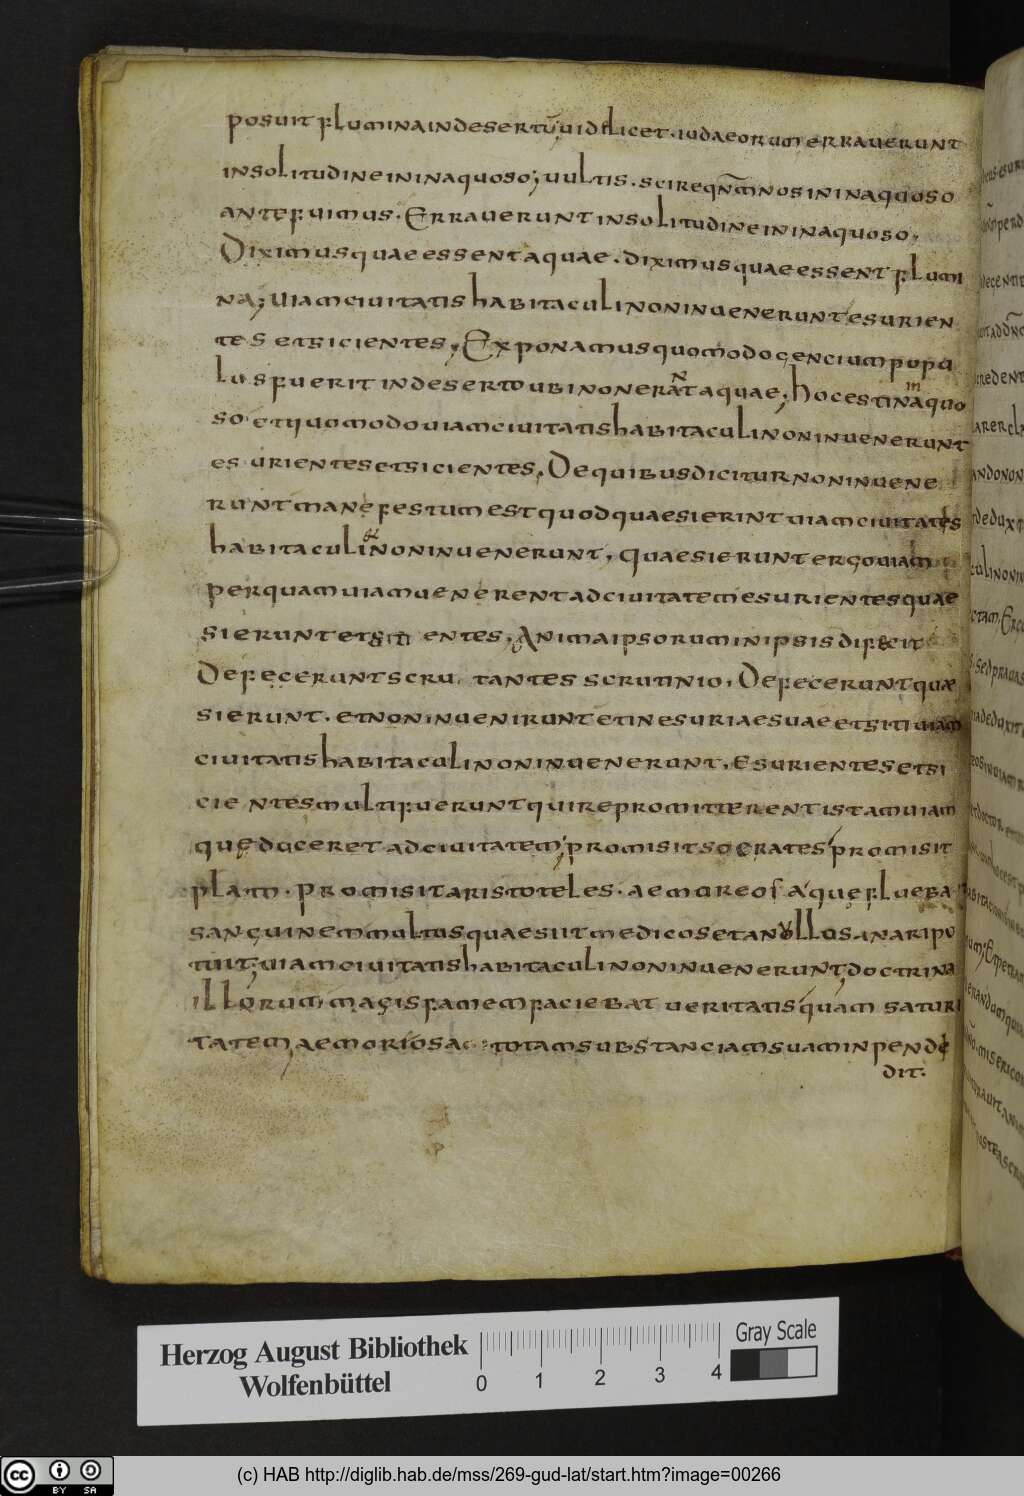 posuit flumina in desertū, uidꝭlicet. iudaeorum errauerunt
in solitudine in inaquoso; uultis. scire qn̄m nos in inaquoso
ante fuimus. Errauerunt in solitudine in inaquoso,
Diximus quae essent aquae. diximus quae essent flumi
na; uiam ciuitatis habitaculi non inuenerunt esurien
tes et sicientes, Exponamus quomodo gencium popu
lus fuerit in deserto ubi non erant aquae, hoc est in inaquo
so et quomodo uiam ciuitatis habitaculi non inuenerunt
esurientes et sicientes, De quibus dicitur non inuene
runt manefestum est quod quaesierint uiam ciuitates
habitaculi non inuenerunt, quaesierunt ergo uiam
per quam uiam uenerent ad ciuitatem esurientes quae
sierunt et siti entes, Anima ipsorum in ipsis difecit
Defecerunt scru tantes scrutinio, Defecerunt quæ
sierunt. et non inuenirunt et in esuriae suae et siti uiam
ciuitatis habitaculi non inuenerunt, esurientes et si
cie ntes multi fuerunt qui repromitterent istam uiam
que duceret ad ciuitatem, promisit socrates promisit
plam. promisit aristoteles. aemoreosa que flueba
sanguinem multus quaesiit medicos et a nullo sanari po
tuit; uiam ciuitatis habitaculi non inuenerunt, doctrina
illorum magis famem faciebat ueritatis quam saturi
tatem, aemoriosa totam substanciam suam inpende
dit.
Herzog August Bibliothek
Wolfenbüttel
0 1 2 3 4
Gray Scale
cc BY SA
(c) HAB http://diglib.hab.de/mss/269-gud-lat/start.htm?image=00266